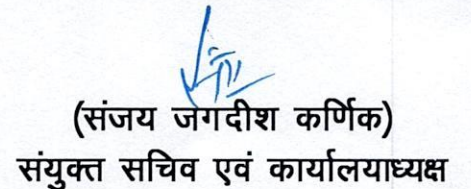 (संजय जगदीश कर्णिक)
संयुक्त सचिव एवं कार्यालयाध्यक्ष